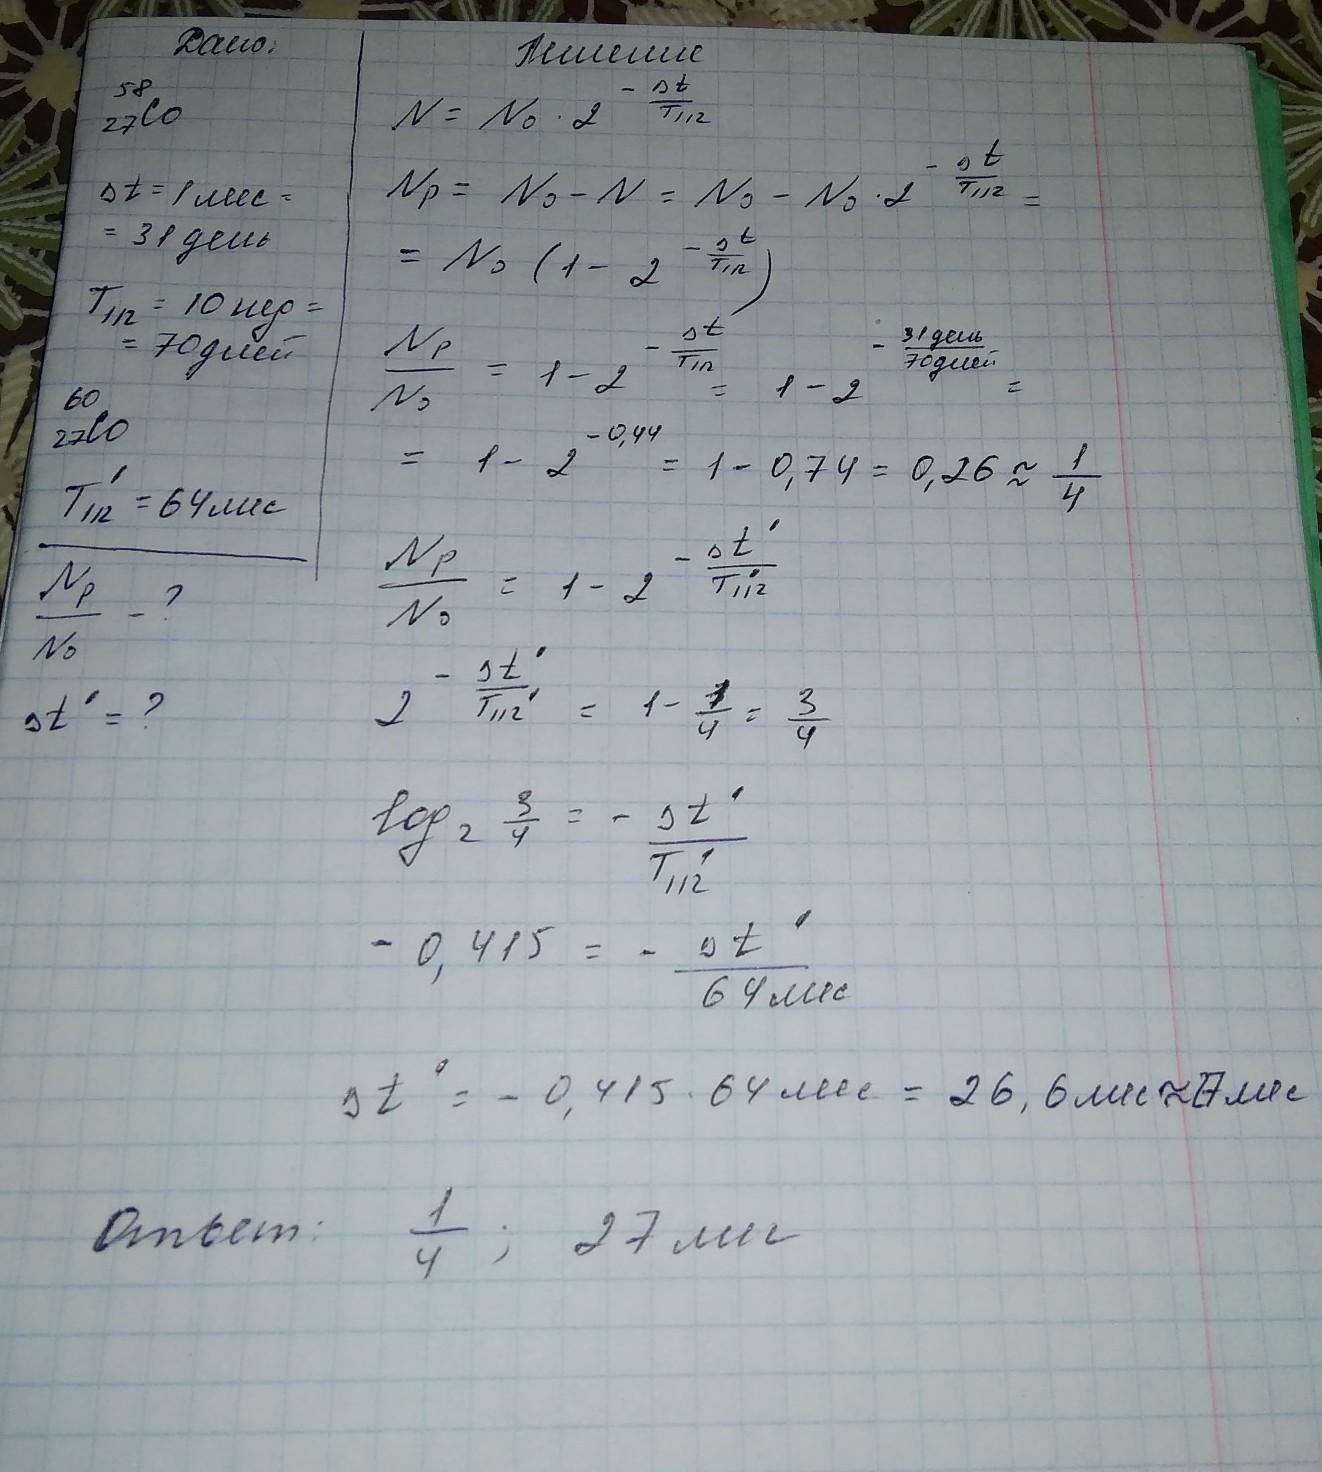 Дано:
58
27Co
Δt = 1 мес =
= 31 день
T1/2 = 10 нед =
= 70 дней
60
27Co
T1/2' = 64 мес
Np/N0 - ?
Δt' = ?
Решение
N = N0 · 2^(-Δt/T1/2)
Np = N0 - N = N0 - N0 · 2^(-Δt/T1/2) =
= N0 (1 - 2^(-Δt/T1/2))
Np/N0 = 1 - 2^(-Δt/T1/2) = 1 - 2^(-31 день/70 дней) =
= 1 - 2^(-0,44) = 1 - 0,74 = 0,26 ≈ 1/4
Np/N0 = 1 - 2^(-Δt'/T1/2')
2^(-Δt'/T1/2') = 1 - 1/4 = 3/4
log2 3/4 = - Δt'/T1/2'
- 0,415 = - Δt'/64 мес
Δt' = - 0,415 · 64 мес = 26,6 мес ≈ 7 мес
Ответ: 1/4 ; 27 мес